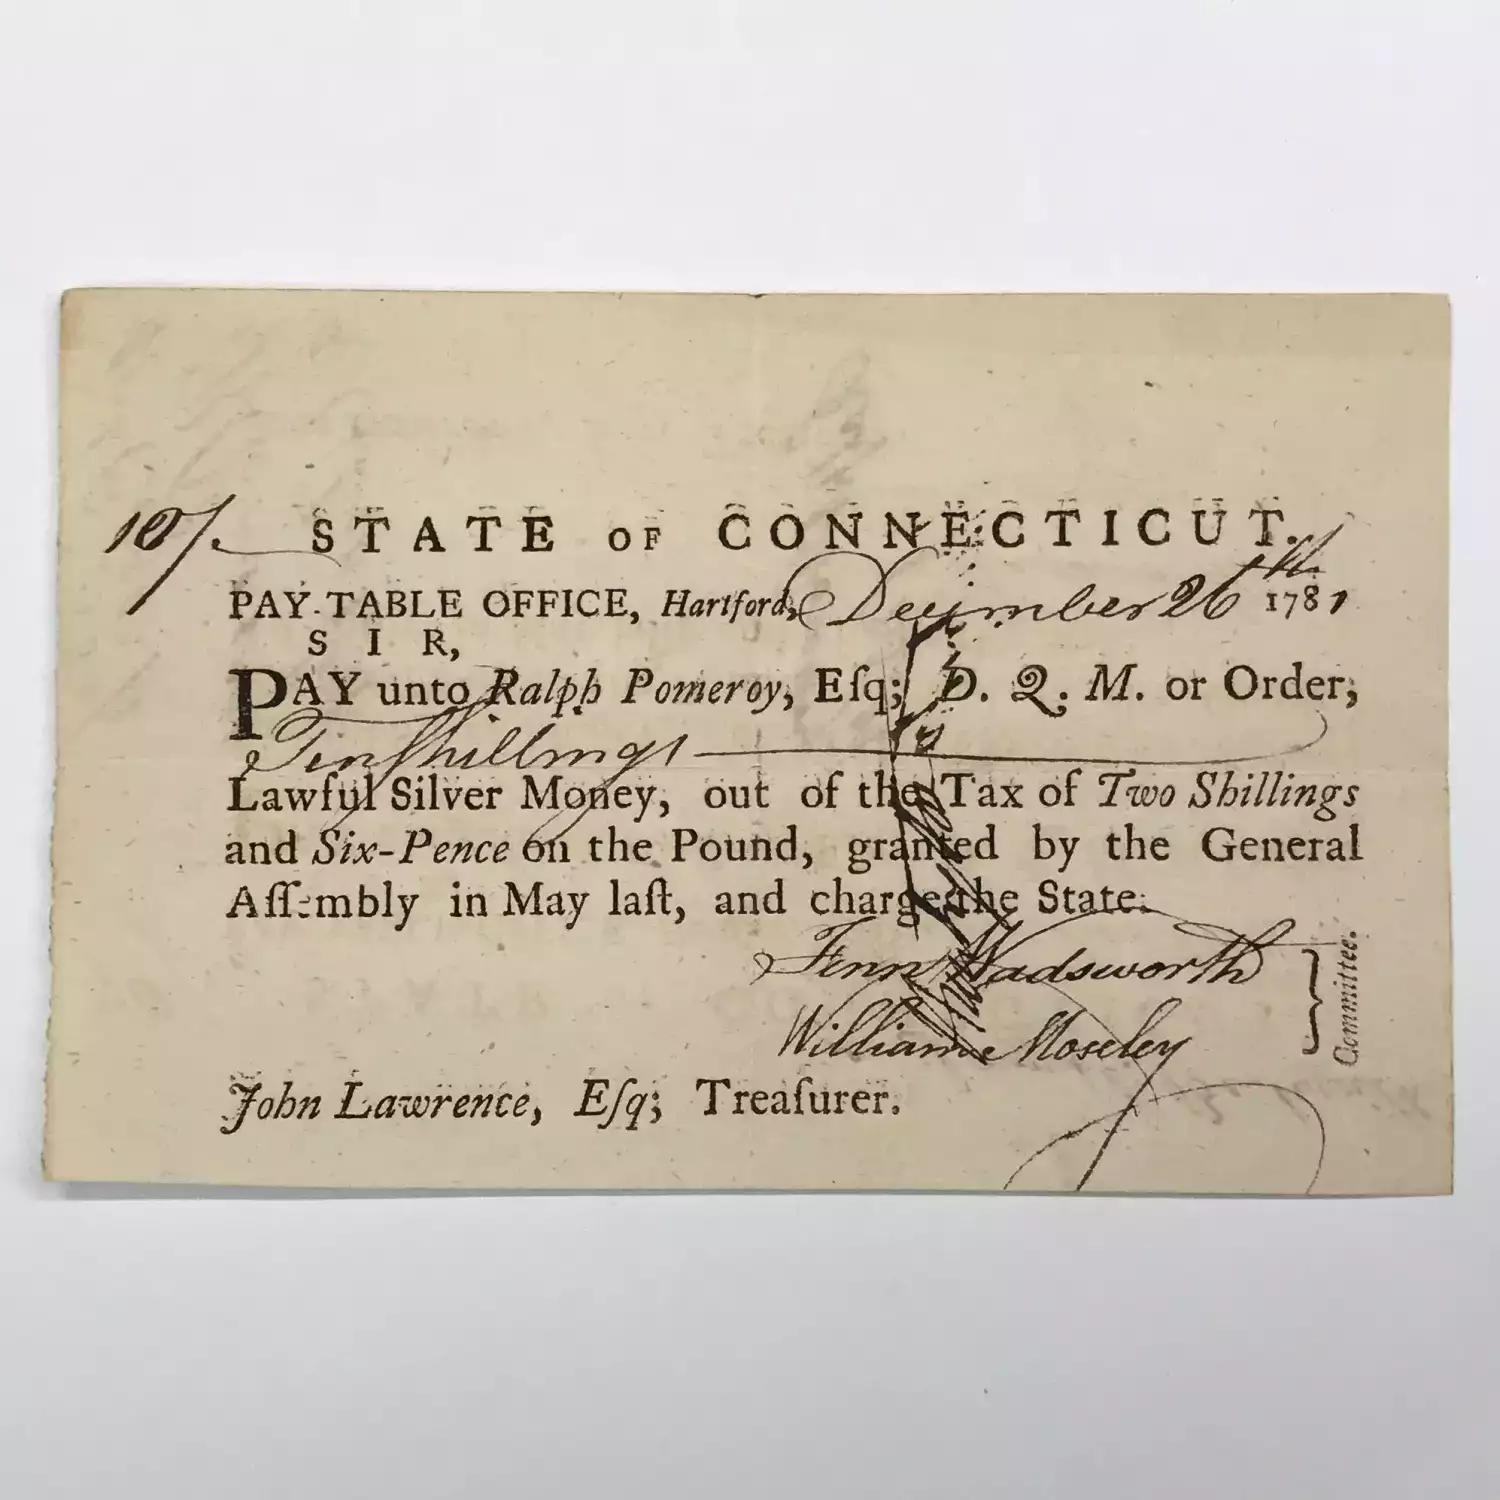 10/. STATE OF CONNECTICUT.
PAY-TABLE OFFICE, Hartford, December 26th 1781
SIR,
PAY unto Ralph Pomeroy, Eſq; D. Q. M. or Order,
Ten Shillings
Lawful Silver Money, out of the Tax of Two Shillings
and Six-Pence on the Pound, granted by the General
Aſſembly in May laſt, and charge the State.
Fenn Wadsworth
William Moseley
Committee.
John Lawrence, Eſq; Treaſurer.